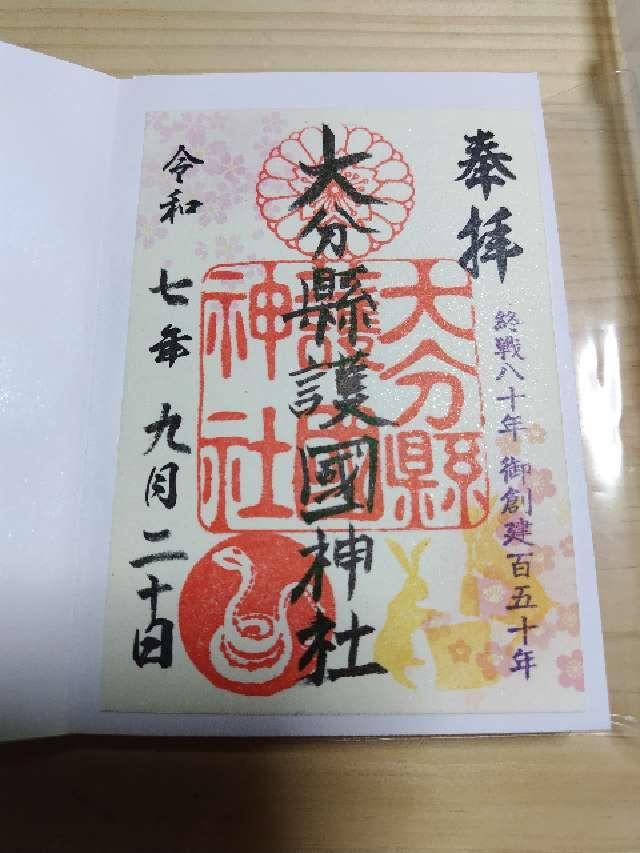 奉拝
終戦八十年 御創建百五十年
大分縣護國神社
大分縣
護國
神社
令和七年九月二十日